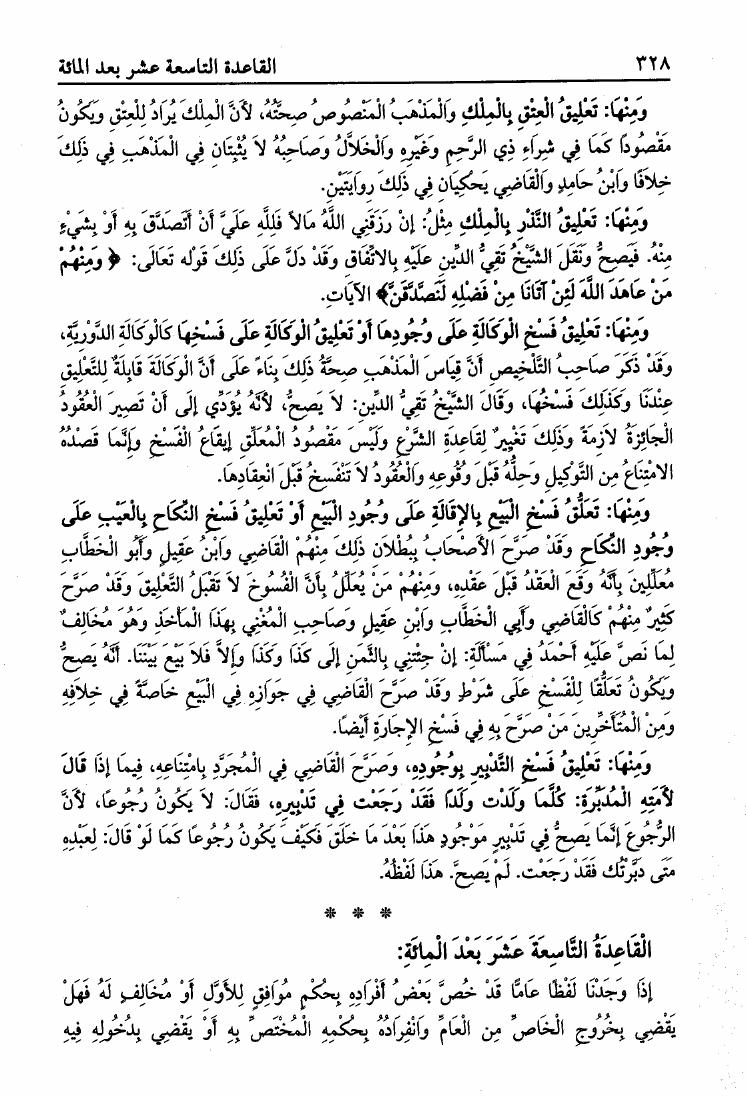 ٣٢٨
القاعدة التاسعة عشر بعد المائة
وَمِنْهَا: تَعْلِيقُ الْعِتْقِ بِالْمِلْكِ وَالْمَذْهَبُ الْمَنْصُوصُ صِحَّتُهُ، لأَنَّ الْمِلْكَ يُرَادُ لِلْعِتْقِ وَيَكُونُ
مَقْصُودًا كَمَا فِي شِرَاءِ ذِي الرَّحِمِ وَغَيْرِهِ وَالْخَلاَّلُ وَصَاحِبُهُ لاَ يُثْبِتَانِ فِي الْمَذْهَبِ فِي ذَلِكَ
خِلاَفًا وَابْنُ حَامِدٍ وَالْقَاضِي يَحْكِيَانِ فِي ذَلِكَ رِوَايَتَيْنِ.
وَمِنْهَا: تَعْلِيقُ النَّذْرِ بِالْمِلْكِ مِثْلُ: إِنْ رَزَقَنِي اللَّهُ مَالاً فَلِلَّهِ عَلَيَّ أَنْ أَتَصَدَّقَ بِهِ أَوْ بِشَيْءٍ
مِنْهُ. فَيَصِحُّ وَنَقَلَ الشَّيْخُ تَقِيُّ الدِّينِ عَلَيْهِ بِالاتِّفَاقِ وَقَدْ دَلَّ عَلَى ذَلِكَ قَوْله تَعَالَى: ﴿ وَمِنْهُمْ
مَنْ عَاهَدَ اللَّهَ لَئِنْ آتَانَا مِنْ فَضْلِهِ لَنَصَّدَّقَنَّ﴾ الآيَاتِ.
وَمِنْهَا: تَعْلِيقُ فَسْخِ الْوَكَالَةِ عَلَى وُجُودِهَا أَوْ تَعْلِيقُ الْوَكَالَةِ عَلَى فَسْخِهَا كَالْوَكَالَةِ الدَّوْرِيَّةِ،
وَقَدْ ذَكَرَ صَاحِبُ التَّلْخِيصِ أَنَّ قِيَاسَ الْمَذْهَبِ صِحَّةُ ذَلِكَ بِنَاءً عَلَى أَنَّ الْوَكَالَةَ قَابِلَةٌ لِلتَّعْلِيقِ
عِنْدَنَا وَكَذَلِكَ فَسْخُهَا، وَقَالَ الشَّيْخُ تَقِيُّ الدِّينِ: لاَ يَصِحُّ، لأَنَّهُ يُؤَدِّي إلَى أَنْ تَصِيرَ الْعُقُودُ
الْجَائِزَةُ لاَزِمَةً وَذَلِكَ تَغْيِيرٌ لِقَاعِدَةِ الشَّرْعِ وَلَيْسَ مَقْصُودُ الْمُعَلِّقِ إيقَاعُ الْفَسْخِ وَإِنَّمَا قَصْدُهُ
الامْتِنَاعُ مِن التَّوْكِيلِ وَحِلُّهُ قَبْلَ وُقُوعِهِ وَالْعُقُودُ لاَ تَنْفَسِخُ قَبْلَ انْعِقَادِهَا.
وَمِنْهَا: تَعَلُّقُ فَسْخِ الْبَيْعِ بِالإِقَالَةِ عَلَى وُجُودِ الْبَيْعِ أَوْ تَعْلِيقُ فَسْخِ النِّكَاحِ بِالْعَيْبِ عَلَى
وُجُودِ النِّكَاحِ وَقَدْ صَرَّحَ الأَصْحَابُ بِبُطْلاَنِ ذَلِكَ مِنْهُمْ الْقَاضِي وَابْنُ عَقِيلٍ وَأَبُو الْخَطَّابِ
مُعَلِّلِينَ بِأَنَّهُ وَقَعَ الْعَقْدُ قَبْلَ عَقْدِهِ، وَمِنْهُمْ مَنْ يُعَلِّلُ بِأَنَّ الْفُسُوخَ لاَ تَقْبَلُ التَّعْلِيقَ وَقَدْ صَرَّحَ
كَثِيرٌ مِنْهُمْ كَالْقَاضِي وَأَبِي الْخَطَّابِ وَابْنِ عَقِيلٍ وَصَاحِبِ الْمُغْنِي بِهَذَا الْمَأْخَذِ وَهُوَ مُخَالِفٌ
لِمَا نَصَّ عَلَيْهِ أَحْمَدُ فِي مَسْأَلَةِ: إنْ جِئْتنِي بِالثَّمَنِ إلَى كَذَا وَكَذَا وَإِلاَّ فَلاَ بَيْعَ بَيْنَنَا. أَنَّهُ يَصِحُّ
وَيَكُونُ تَعَلُّقًا لِلْفَسْخِ عَلَى شَرْطٍ وَقَدْ صَرَّحَ الْقَاضِي فِي جَوَازِهِ فِي الْبَيْعِ خَاصَّةً فِي خِلاَفِهِ
وَمِنْ الْمُتَأَخِّرِينَ مَنْ صَرَّحَ بِهِ فِي فَسْخِ الإِجَارَةِ أَيْضًا.
وَمِنْهَا: تَعْلِيقُ فَسْخِ التَّدْبِيرِ بِوُجُودِهِ، وَصَرَّحَ الْقَاضِي فِي الْمُجَرَّدِ بِامْتِنَاعِهِ، فِيمَا إذَا قَالَ
لأَمَتِهِ الْمُدَبَّرَةِ: كُلَّمَا وَلَدْت وَلَدًا فَقَدْ رَجَعْت فِي تَدْبِيرِهِ، فَقَالَ: لاَ يَكُونُ رُجُوعًا، لأَنَّ
الرُّجُوعَ إنَّمَا يَصِحُّ فِي تَدْبِيرِ مَوْجُودٍ هَذَا بَعْدَ مَا خَلَقَ فَكَيْفَ يَكُونُ رُجُوعًا كَمَا لَوْ قَالَ: لِعَبْدِهِ
مَتَى دَبَّرْتُك فَقَدْ رَجَعْت. لَمْ يَصِحَّ. هَذَا لَفْظُهُ.
* * *
الْقَاعِدَةُ التَّاسِعَةَ عَشَرَ بَعْدَ الْمِائَةِ:
إذَا وَجَدْنَا لَفْظًا عَامًّا قَدْ خُصَّ بَعْضُ أَفْرَادِهِ بِحُكْمٍ مُوَافِقٍ لِلأَوَّلِ أَوْ مُخَالِفٍ لَهُ فَهَلْ
يَقْضِي بِخُرُوجِ الْخَاصِّ مِن الْعَامِّ وَانْفِرَادُهُ بِحُكْمِهِ الْمُخْتَصِّ بِهِ أَوْ يَقْضِي بِدُخُولِهِ فِيهِ